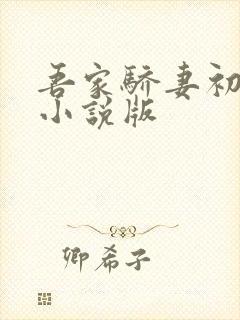 吾家驕妻初
小說版
卿希子